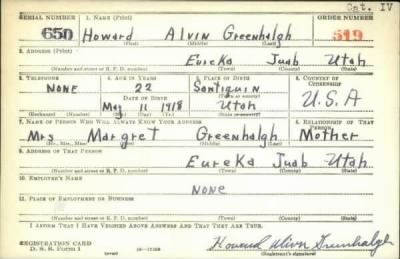 Cat. IV
SERIAL NUMBER 1. NAME (Print) ORDER NUMBER
650 Howard Alvin Greenhalgh 519
(First) (Middle) (Last)
2. ADDRESS (Print)
Eureka Juab Utah
(Number and street or R. F. D. number) (Town) (County) (State)
3. TELEPHONE 4. AGE IN YEARS 5. PLACE OF BIRTH 6. COUNTRY OF CITIZENSHIP
NONE 22 Santiquin
DATE OF BIRTH (Town or county)
May 11 1918 Utah U.S.A
(Mo.) (Day) (Yr.) (State or country)
7. NAME OF PERSON WHO WILL ALWAYS KNOW YOUR ADDRESS 8. RELATIONSHIP OF THAT PERSON
Mrs Margret Greenhalgh Mother
(Mr., Mrs., Miss) (First) (Middle) (Last)
9. ADDRESS OF THAT PERSON
Eureka Juab Utah
(Number and street or R. F. D. number) (Town) (County) (State)
10. EMPLOYER'S NAME
NONE
11. PLACE OF EMPLOYMENT OR BUSINESS
(Number and street or R. F. D. number) (Town) (County) (State)
I AFFIRM THAT I HAVE VERIFIED ABOVE ANSWERS AND THAT THEY ARE TRUE.
REGISTRATION CARD
D. S. S. Form 1 Howard Alvin Greenhalgh
(over) (Registrant's signature)